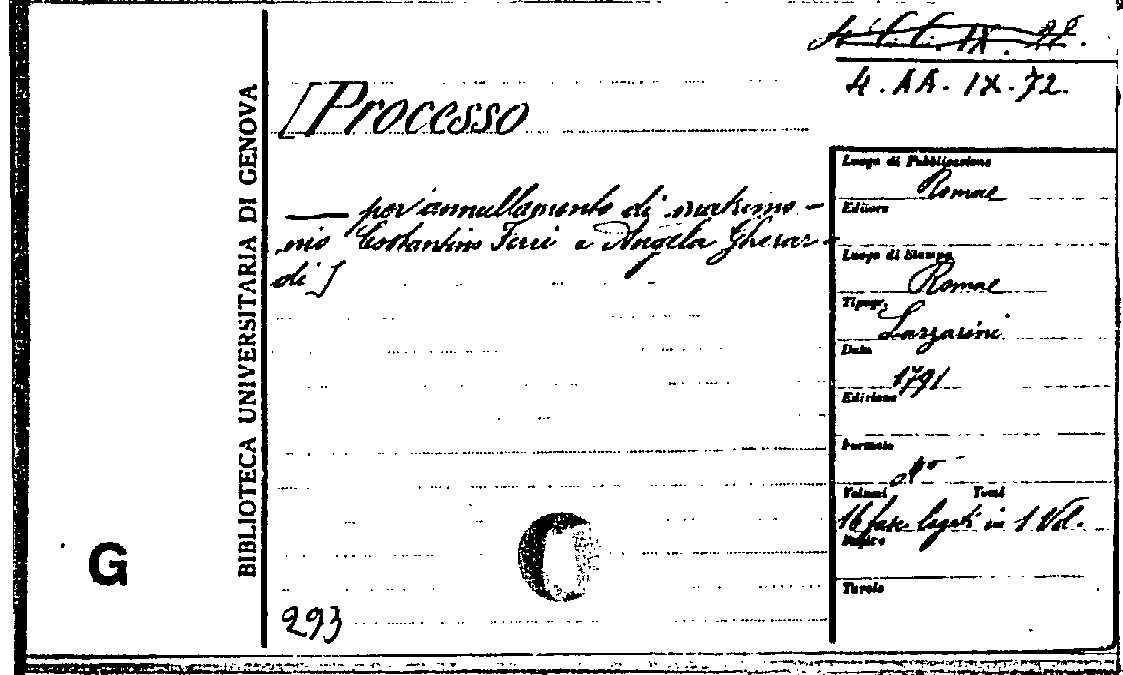 4. AA. IX. 72.
BIBLIOTECA UNIVERSITARIA DI GENOVA
[Processo
— per annullamento di matrimo-
nio Costantino Ferri e Angela Gherar-
di]
293
G
Luogo di Pubblicazione
Romae
Editore
Luogo di Stampa
Romae
Tipogr.
Lazzarini
Data
1791
Edizione
Formato
4°
Volumi Tomi
16 fasc. legati in 1 Vol.
Tavole